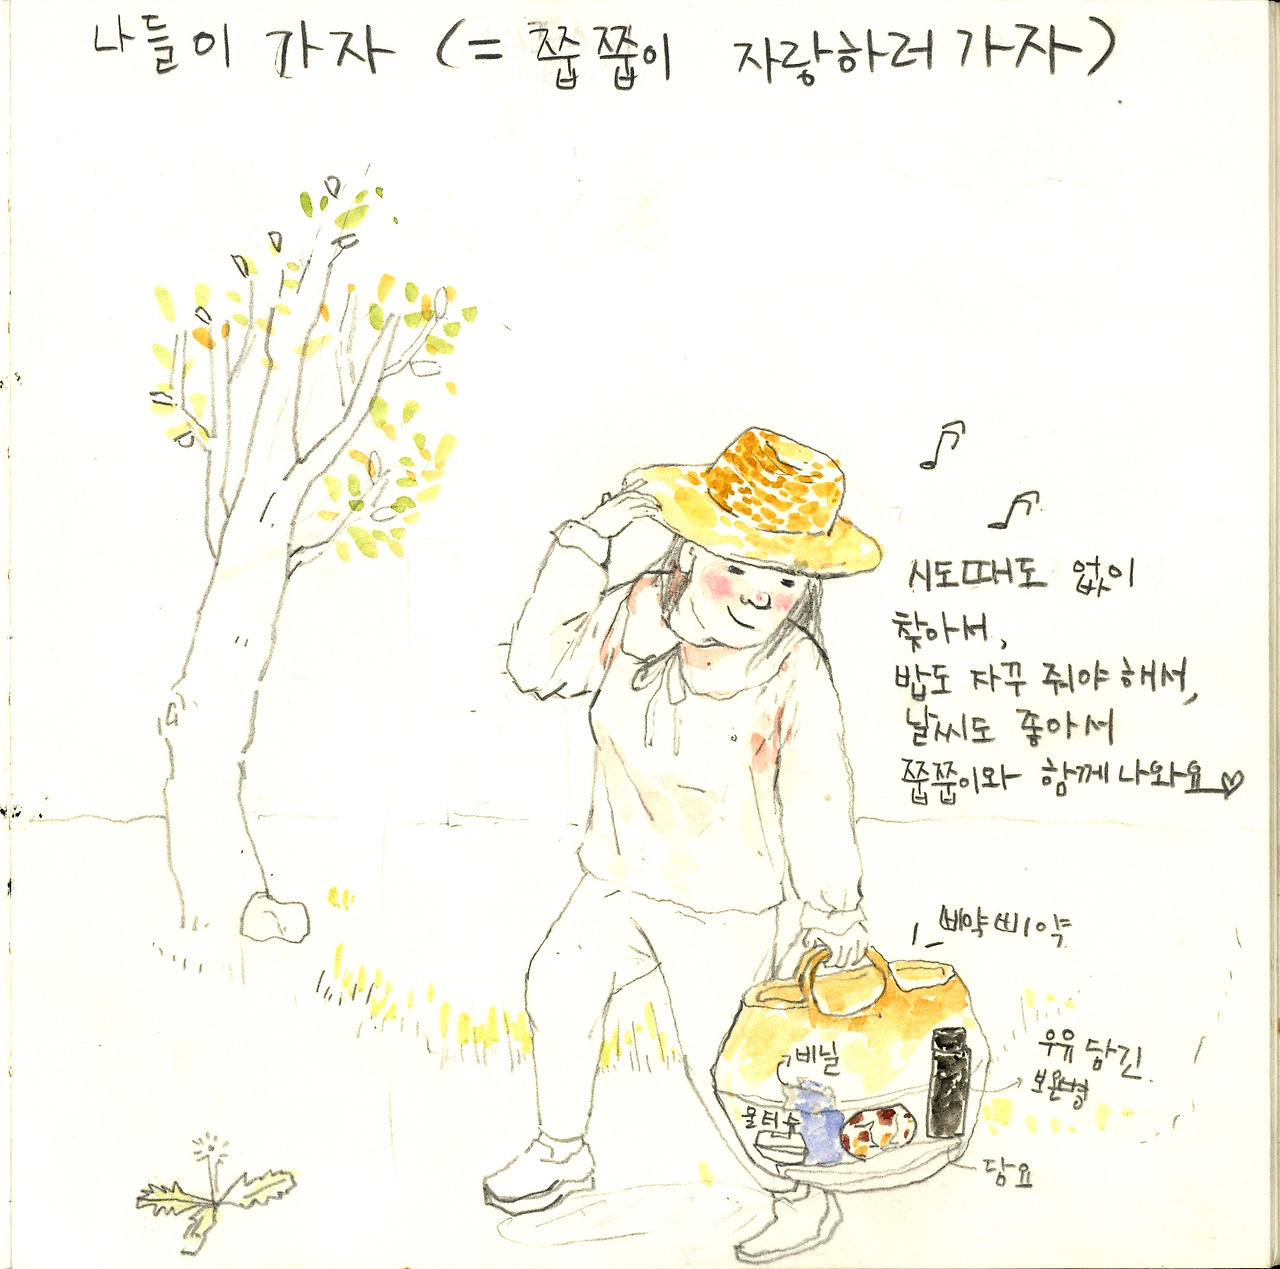 나들이 가자 (= 쭙쭙이 자랑하러 가자)
시도때도 없이
찾아서,
밥도 자꾸 줘야 해서,
날씨도 좋아서
쭙쭙이와 함께 나와요♡
삐약삐약
비닐
물티슈
우유 담긴
보온병
담요